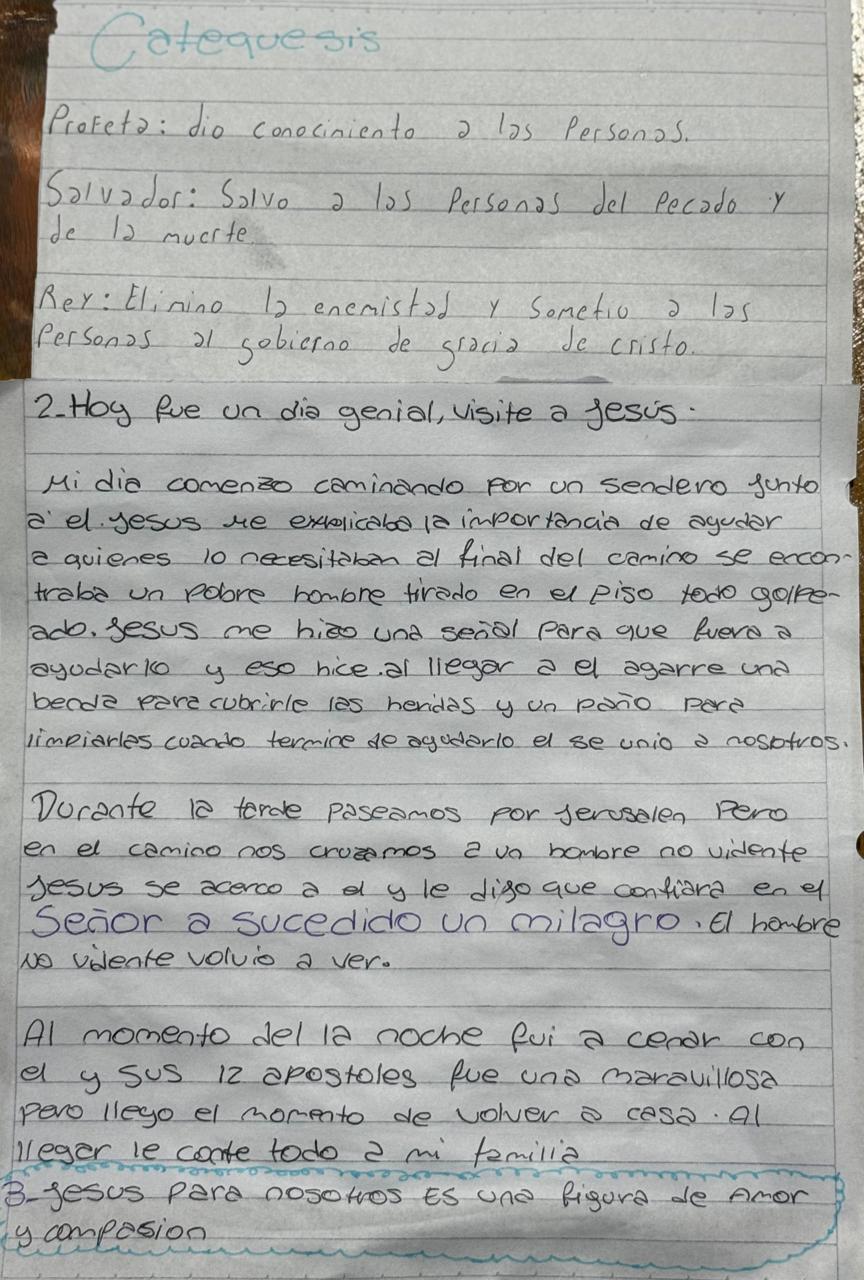 Catequesis
Profeta: dio conociniento a las Personas.
Salvador: Salvo a las Personas del Pecado y
de la muerte.
Rey: Elimino la enemistad y Sometio a las
Personas al gobierno de gracia de cristo.
2-Hoy fue un dia genial, visite a Jesús.
Mi dia comenzo caminando por un sendero junto
a el. Jesus me explicaba la importancia de ayudar
a quienes lo necesitaban al final del camino se encon-
traba un pobre hombre tirado en el piso todo golpe-
ado. Jesus me hizo una señal para que fuera a
ayudarlo y eso hice. al llegar a el agarre una
benda para cubrirle las heridas y un paño para
limpiarles cuando termine de ayudarlo el se unio a nosotros.
Durante la tarde paseamos por Jerusalen Pero
en el camino nos cruzamos a un hombre no vidente
Jesus se acerco a el y le dijo que confiara en el
Señor a sucedido un milagro. El hombre
No vidente volvio a ver.
Al momento del la noche fui a cenar con
el y sus 12 apostoles fue una maravillosa
pero llego el momento de volver a casa. Al
llegar le conte todo a mi familia
3-Jesus para nosotros Es una figura de Amor
y compasion